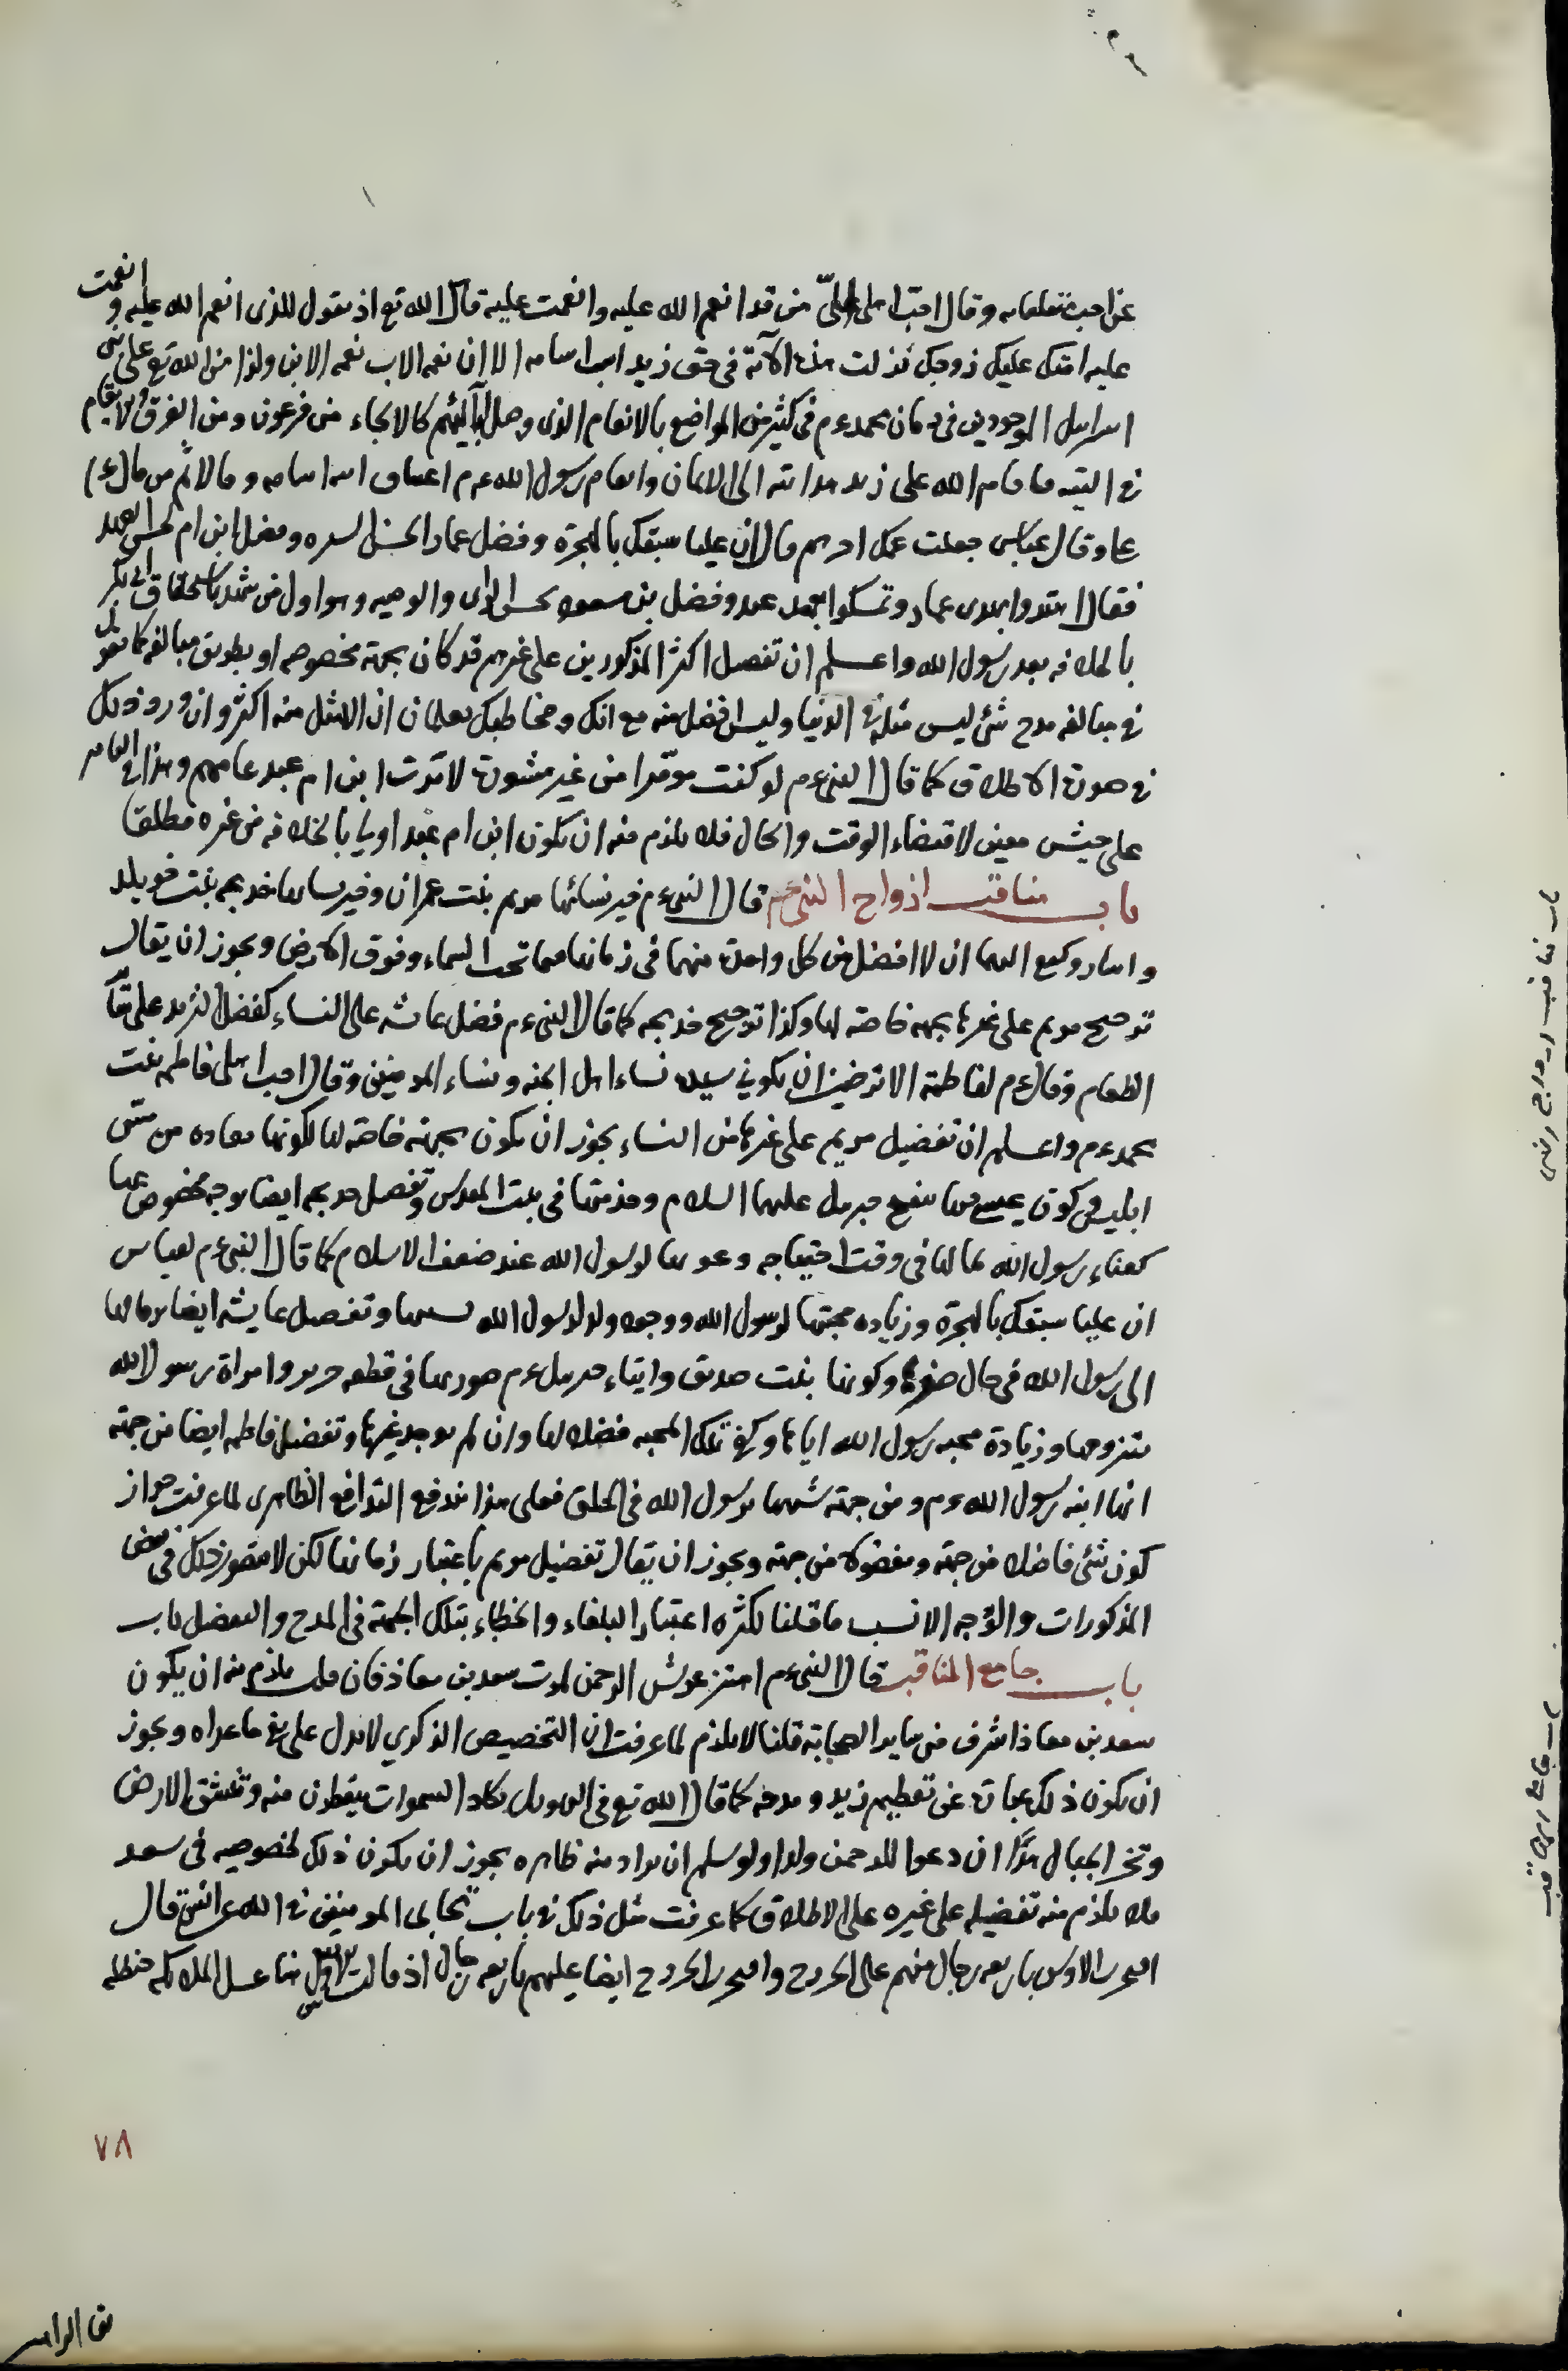 عن احبية متعلقاته وقال احب اهلي الي من قد انعم الله عليه وانعمت عليه قال الله تع اذ تقول للذي انعم الله عليه وانعمت
عليه امسك عليك زوجك نزلت هذه الآية في حق زيد اب اسامه الا ان نعمه الاب نعمه الابن ولذا من الله تع على بني
اسرائيل الموجودين في زمان محمد ءم في كثير من المواضع بالانعام الذي وصل الى آبائهم كالانجاء من فرعون ومن الغرق والانعام
في التيه الله على زيد هدايته الى الايمان وانعام رسول الله ءم اعتاقه
وقال عباس جعلت عمك قال ان عليا سبقك بالهجرة وفضل عمار وفضل ابن ام
فقال اهتدوا بهدي عمار وتمسكوا بعهد وفضل بن مسعود الراي والوصيه وهو اول من ابي بكر
بالخلافه بعد رسول الله واعلم ان تفضيل اكثر المذكورين على غيرهم قد كان بجهة مخصوصه او بطريق مبالغه كما تقول
في مبالغه مدح شئ ليس مثله في الدنيا وليس افضل منه مع انك ومخاطبك تعلمان ان الامثل منه اكثر وان ورد ذلك
في صورة الاطلاق كما قال النبي ءم لو كنت مؤمرا من غير مشورة لامرت ابن ام عبد عليهم وهذا في
على جيش معين لاقتضاء الوقت والحال فلا يلزم منه ان يكون ابن ام عبد اولى بالخلافه من غيره مطلقا
باب مناقب ازواج النبي ءم قال النبي ءم خير نسائها مريم بنت عمران وخير نسائها خديجه بنت خويلد
واشار وكيع الى ان لا افضل من كل واحدة منهما في زمانها مما تحت السماء وفوق الارض ويجوز ان يقال
ترجيح مريم على غيرها بجهه خاصه لها وكذا ترجيح خديجه كما قال النبي ءم فضل عائشه على النساء كفضل الثريد على
الطعام وقال ءم لفاطمة الا ترضين ان تكوني سيده نساء اهل الجنه ونساء المومنين وقال احب اهلي فاطمه بنت
محمد ءم واعلم ان تفضيل مريم على غيرها من النساء يجوز ان يكون بجهة خاصه لها لكونها معاذه من مس
ابليس وكون عيسى منها بنفخ جبريل عليهما السلام وخدمتها في بيت المقدس وتفضيل خديجه ايضا بوجه مخصوص بها
كغناء رسول الله بمالها في وقت احتياجه وعونها لرسول الله عند ضعف الاسلام كما قال النبي ءم لعباس
ان عليا سبقك بالهجرة وزياده محبتها لرسول الله ووجود ولد لرسول الله منها وتفضيل عايشه ايضا بزفافها
الى رسول الله في حال صغرها وكونها بنت صديق وايتاء جبريل ءم صورتها في قطعه حرير وامراة رسول الله
بتزوجها وزيادة محبه رسول الله اياها وكفى تلك المحبه فضلا لها وان لم يوجد غيرها وتفضيل فاطمه ايضا من جهة
انها ابنه رسول الله ءم ومن جهة شبهها برسول الله في الخلق فعلى هذا يندفع التدافع الظاهري لما عرفت جواز
كون شئ فاضلا من جهة ومفضولا من جهة ويجوز ان يقال تفضيل مريم باعتبار زمانها لكن لا يتصور ذلك في بعض
المذكورات والوجه الانسب ما قلنا لكثرة اعتبار البلغاء والخطباء بتلك الجهة في المدح والتفضيل باب
باب جامع المناقب قال النبي ءم اهتز عرش الرحمن لموت سعد بن معاذ فان قلت يلزم منه ان يكون
سعد بن معاذ اشرف من ساير الصحابة قلنا لا يلزم لما عرفت ان التخصيص الذكري لا يدل على نفي ما عداه ويجوز
ان يكون ذلك عبارة عن تعظيم زيد ومدحه كما قال الله تع في التهويل تكاد السموات يتفطرن منه وتنشق الارض
وتخر الجبال هدا ان دعوا للرحمن ولدا ولو سلم ان يراد منه ظاهره يجوز ان يكون ذلك لخصوصيه في سعد
فلا يلزم منه تفضيله على غيره على الاطلاق كما عرفت مثل ذلك في باب تحابي المومنين في الله عن انس قال
افتخر الاوس باربعه رجال منهم على الخزرج وافتخر الخزرج ايضا عليهم باربعه رجال اذ قالت الاوس منا غسيل الملائكه حنظله
٧٨
باب مناقب ازواج النبي
باب جامع المناقب